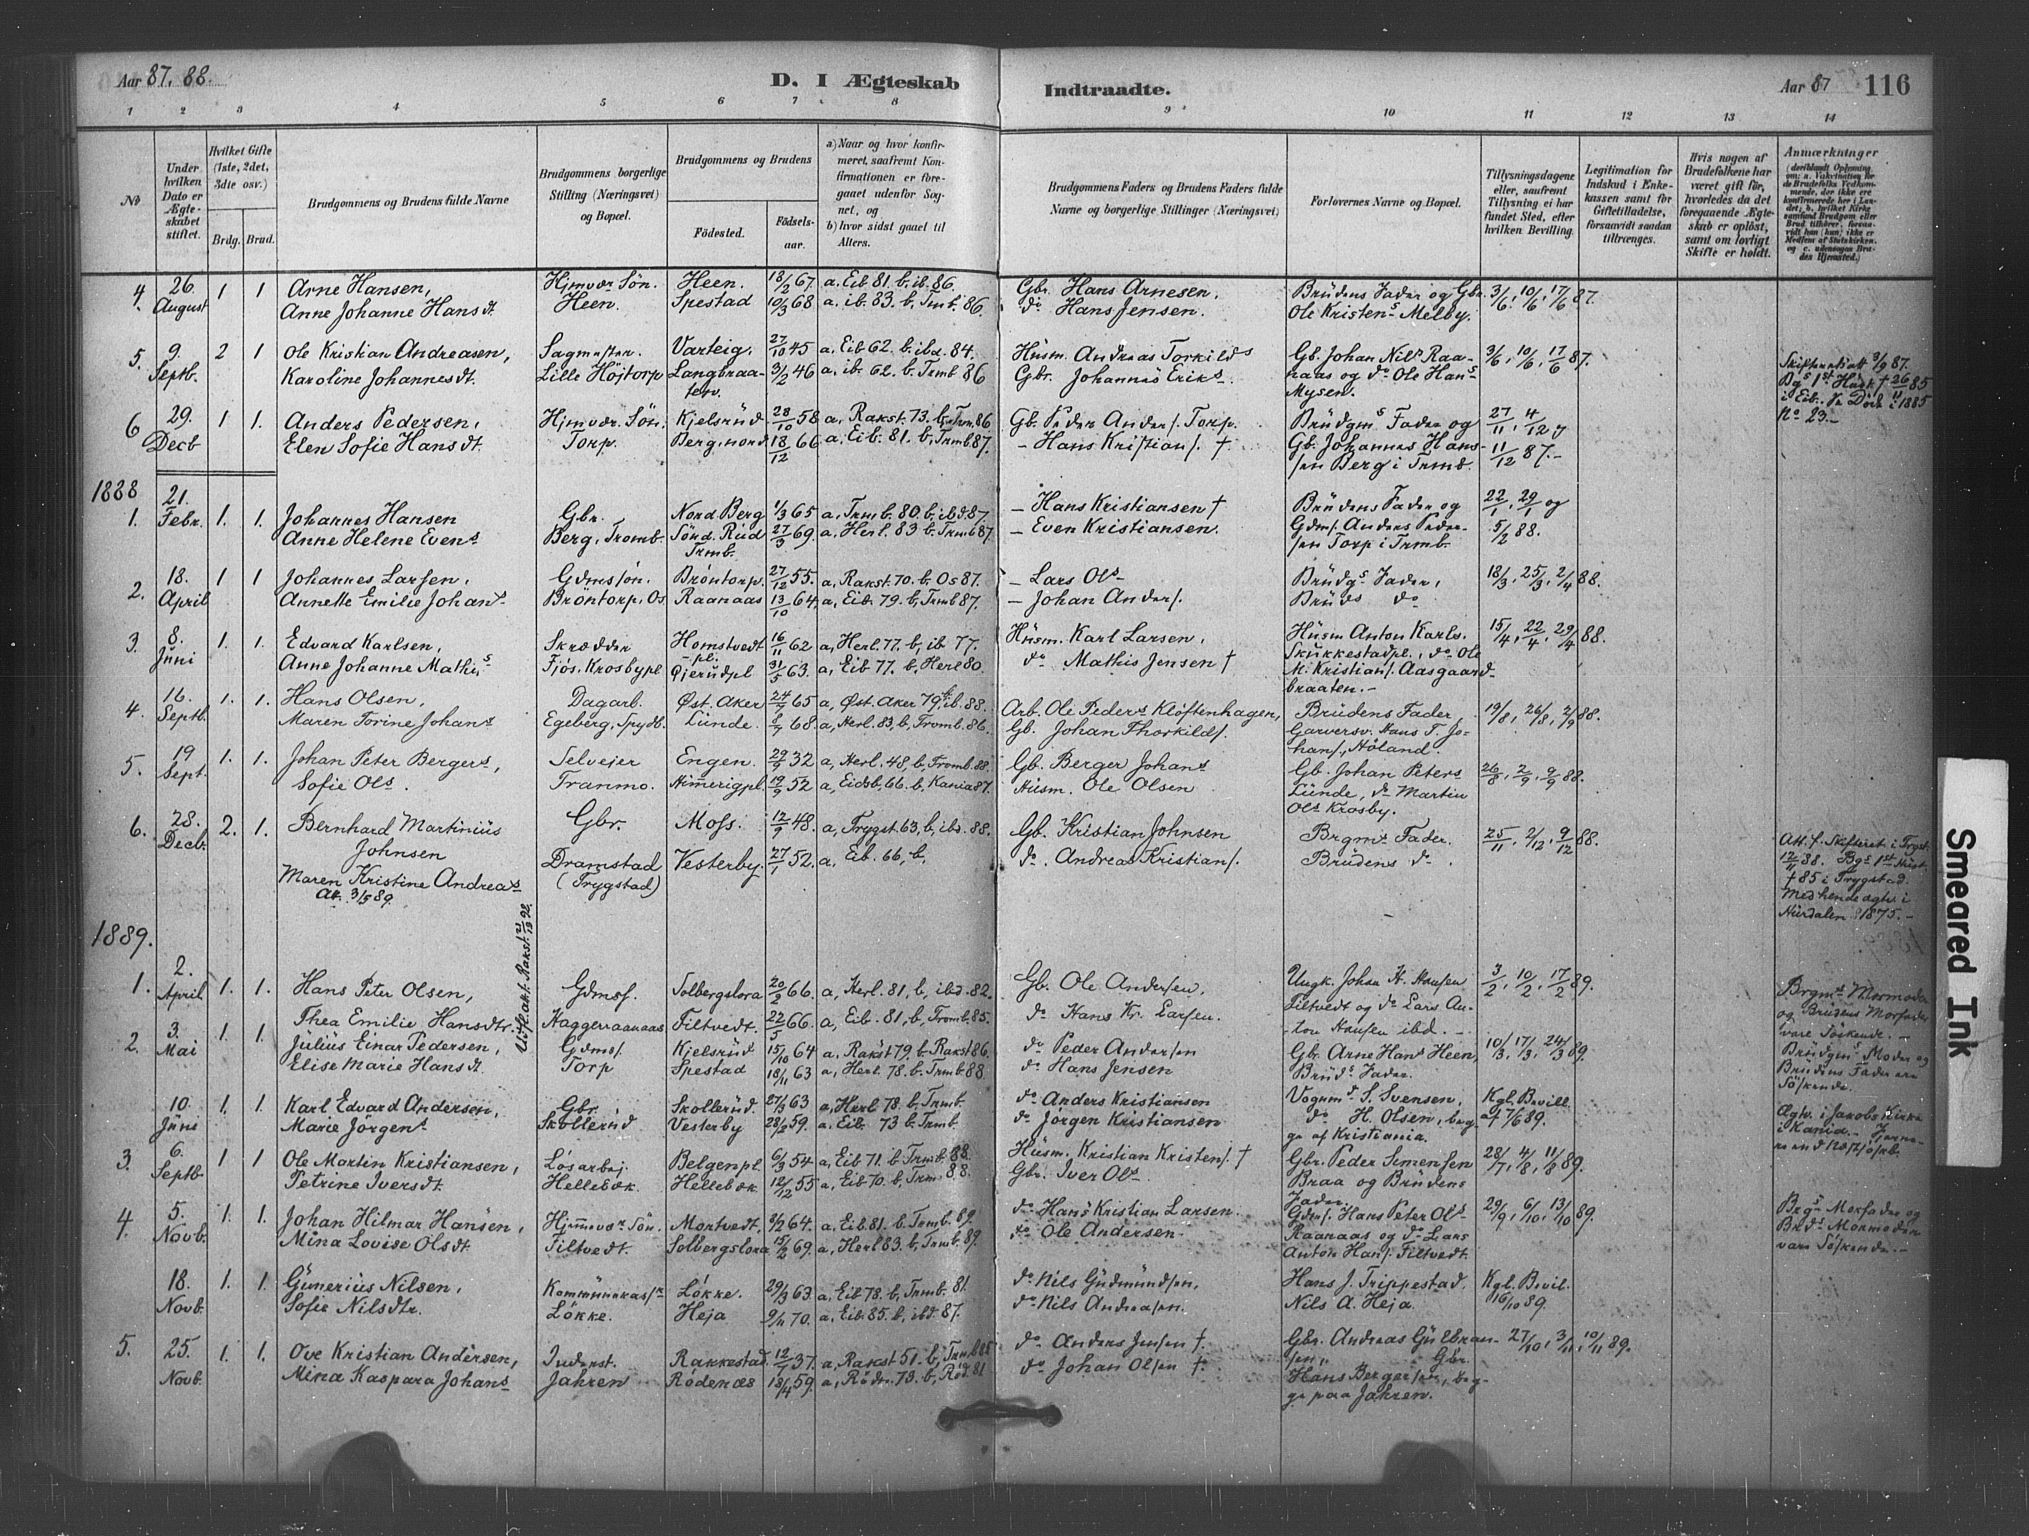 Aar 87. 88.
D. I Ægteskab
Indtraadte.
Aar 87
116
1 2 3 4 5 6 7 8 9 10 11 12 13 14
No
Under hvilken Dato er Ægteskabet stiftet.
Hvilket Gifte (1ste, 2det, 3die osv.)
Brdg. Brud.
Brudgommens og Brudens fulde Navne
Brudgommens borgerlige Stilling (Næringsvei) og Bopæl.
Brudgommens og Brudens
Fødested.
Fødselsaar.
a) Naar og hvor konfirmeret, saafremt Konfirmationen er foregaaet udenfor Sognet, og
b) hvor sidst gaaet til Alters.
Brudgommens Faders og Brudens Faders fulde Navne og borgerlige Stillinger (Næringsvei)
Forlovernes Navne og Bopæl.
Tillysningsdagene eller, saafremt Tillysning ei har fundet Sted, efter hvilken Bevilling.
Legitimation for Indskud i Enkekassen samt for Giftetilladelse, forsaavidt saadan tiltrænges.
Hvis nogen af Brudefolkene har været gift før, hvorledes da det foregaaende Ægteskab er opløst, samt om lovligt Skifte er holdt.
Anmærkninger
4. 26. August 1 1 Arne Hansen, Hjmvær. Søn. Heen. 18/2 67 a. Eib 81. b. ib. 86. Gbr. Hans Arnesen. Brudens Fader og Gbr. 3/6, 10/6, 17/6 87.
Anne Johanne Hansdt. Heen. Spestad 10/3 68 a. ib. 83. b, Trmb. 86. do Hans Jensen. Ole Kristens Melby.
5. 9. Septb. 2 1 Ole Kristian Andreasen, Sagmester. Varteig. 27/10 45 a. Eib 62. b. ibd. 84. Husm. Andreas Torkilds Gb. Johan Nils Raa- 3/6, 10/6, 17/6 87.
Karoline Johannesdt. Lille Höjtorp Langbraaten. 3/2 46 a. ib. 62. b. Trmb 86 Gbr. Johannes Eriks. naas og do Ole Hans Mysen.
Skifteratt. 3/9 87. Bgs 1st Hust. † 26/11 85 i Eib. Se Døde i 1885 No 23.-
6. 29. Decb 1 1. Anders Pedersen, Hjmvær Søn. Kjelsrud 28/10 58 a, Rakst. 73. b, Trm. 86 Gb. Peder Anders. Torp. Brudgms Fader og 27/11, 4/12 og
Elen Sofie Hansdt. Torp. Berg, nord 18/12 66 a. Eib. 81. b, Trmb 87. - Hans Kristians. † Gb. Johannes Hanssen Berg i Trmb. 11/12 87.-
1888
1. 21. Febr. 1. 1. Johannes Hansen Gbr. Nord Berg 1/3 65 a, Trmb. 80. b, ibd. 87. - Hans Kristiansen † Brudens Fader og 22/1, 29/1 og
Anne Helene Evens Berg, Tromb. Sönd. Rud Trmb. 27/3 69. a, Herl. 83 b. Trmb 87. - Even Kristiansen. Gdms. Anders Pedersen Torp i Trmb. 5/2 88.
2. 18. April 1 1 Johannes Larsen, Gdmssøn. Bröntorp. 27/12 55. a, Rakst. 70. b, Os 87. - Lars Ols Brudgs Fader, 18/3, 25/3, 2/4 88.
Annette Emilie Johans Bröntorp, Os Raanaas 13/10 64. a, Eib. 79. b, Trmb 87. - Johan Anders. Bruds do
3. 8. Juni 1. 1. Edvard Karlsen, Skrædder Homstvedtpl. 16/11 62 a, Herl. 77. b, ib 77. Husm. Karl Larsen, Husm Anton Karls. 15/4, 22/4, 29/4 88.
Anne Johanne Mathis Fjös. Krosbypl Gjerudpl 31/5 63. a, Eib 77. b, Herl 80. do Mathis Jensen † Skukkestadpl., do Ole M. Kristians. Aasgaardbraaten.-
4. 16. Septb. 1. 1. Hans Olsen, Dagarb. Øst. Aker 24/7 65 a, Øst. Aker 79, b. ib. 88. Arb. Ole Peders Kløftenhagen, Brudens Fader, 19/8, 26/8, 2/9 88.
Maren Torine Johans Egeberg, Spydb. Lunde. 8/7 68 a, Herl. 83, b, Tromb. 86. Gb. Johan Thorkilds. Garversv. Hans T. Johans., Höland.
5. 19 Sept. 1. 1. Johan Peter Bergers, Selveier Engen. 29/9 32 a, Herl. 48, b, Tromb. 88. Gb. Berger Johans Gb. Johan Peters 26/8, 2/9, 9/9 88.
Sofie Ols. Tranmo. Himmerigpl. 19/9 52 a, Eidsb. 66. b, Kania 87. Husm. Ole Olsen Lunde, do Martin Ols Krosby.
6. 28. Decb. 2. 1. Bernhard Martinius Johnsen Gbr. Moss. 12/9 48. a, Trygst. 63, b, ibd. 88. Gb. Kristian Johnsen Brgms Fader. 25/11, 2/12, 9/12 88.
Maren Kristine Andreas Dramstad (Trygstad) Vesterby. 27/1 52. a, Eib. 66, b, do. Andreas Kristians. Brudens do.
At. 3/5 89.
Att. f. Skifteret i Trygst. 12/11 88. Bgs 1st Hust. † 85 i Trygstad. Med hende agtv. i Hurdalen 1875.-
1889.
Utfl. akt. Rakst. 21/12 92.
1. 2. April 1. 1. Hans Peter Olsen, Gdmss. Solbergslora 20/2 66. a, Herl. 81, b, ibd. 82. Gb. Ole Andersen. Ungk. Johan H. Hansen 3/2, 10/2, 17/2 89.
Thea Emilie Hansdtr. Haggerraanaas Filtvedt. 22/5 66. a, Eib. 81, b, Tromb. 85. do Hans Kr. Larsen. Filtvedt og do Lars Anton Hansen ibd.-
Brgms Mormoder og Brudens Morfader vare Söskende.
2. 3. Mai 1. 1. Julius Einar Pedersen, Gdmss. Kjelsrud 15/10 64 a, Rakst 79. b. Rakst 86. do Peder Andersen Gbr. Arne Hans Heen, 10/3, 17/3, 24/3 89.
Elise Marie Hansdt. Torp Spestad 18/11 63 a, Herl. 78. b, Trmb 88. do Hans Jensen Bruds Fader.
Brudgms Moder og Brudens Fader ere Söskende.
10. Juni 1. 1. Karl Edvard Andersen, Gbr. Skollerud 27/3 63 a, Herl 78. b, Trmb. do Anders Kristiansen Vognm. S. Svensen, Kgl. Bevill.
Marie Jörgens Skollerud Vesterby 28/2 59. a. Eib. 73 b. Trmb. do Jörgen Kristiansen do H. Olsen, begge af Kristiania. af 7/6 89.
Ægtv. i Jakobs Kirke i Kania.
3. 6. Septb. 1 1 Ole Martin Kristiansen, Lösarbej. Belgenpl. 6/3 54 a, Eib 71. b. Trmb. 88. Husm. Kristian Kristens. † Gbr. Peder Simensen 28/7, 4/8, 11/8 89.
Petrine Iversdt. Hellebæk. Hellebæk 12/12 55 a, Eib 70. b, Trm. 88. Gbr. Iver Ols. Braa og Brudens Fader.
4. 5. Novb. 1. 1. Johan Hilmar Hansen, Hjemmevær Sön. Mortvedt. 3/2 64. a. Eib. 81. b. Tomb. 89. do Hans Kristian Larsen. Gdms. Hans Peter Ols 29/9, 6/10, 13/10 89.
Mina Lovise Olsdt. Filtvedt. Solbergslora 15/2 69. a, Herl 83. b, Trmb. 89. do Ole Andersen. Raanaas og do Lars Anton Hans. Filtvedt.
Brgs Morfader og Brds Mormoder vare Söskende.-
18. Novb. 1. 1. Gunerius Nilsen, Kommunekassr Løkke. 29/3 63. a, Eib 78. b, Trmb. 81. do Nils Gudmundsen, Hans J. Trippestad. Kgl. Bevil.
Sofie Nilsdtr. Løkke. Heja 9/11 70. a, Eib 85. b, ibd. 87. do Nils Andreasen. Nils A. Heja. 16/10 89.
5. 25. Novb. 1. 1. Ove Kristian Andersen, Inderst. Rakkestad. 12/2 37. a, Rakst 51. b, Trmb 85 do Anders Jensen † Gbr. Andreas Gulbran- 27/10, 3/11, 10/11 89.
Mina Kaspara Johans Jahren Rödenæs 13/4 59. a, Röd. 73. b, Röd. 81 do Johan Olsen † sen, Gbr. Hans Bergersen, begge paa Jahren.
Smeared Ink